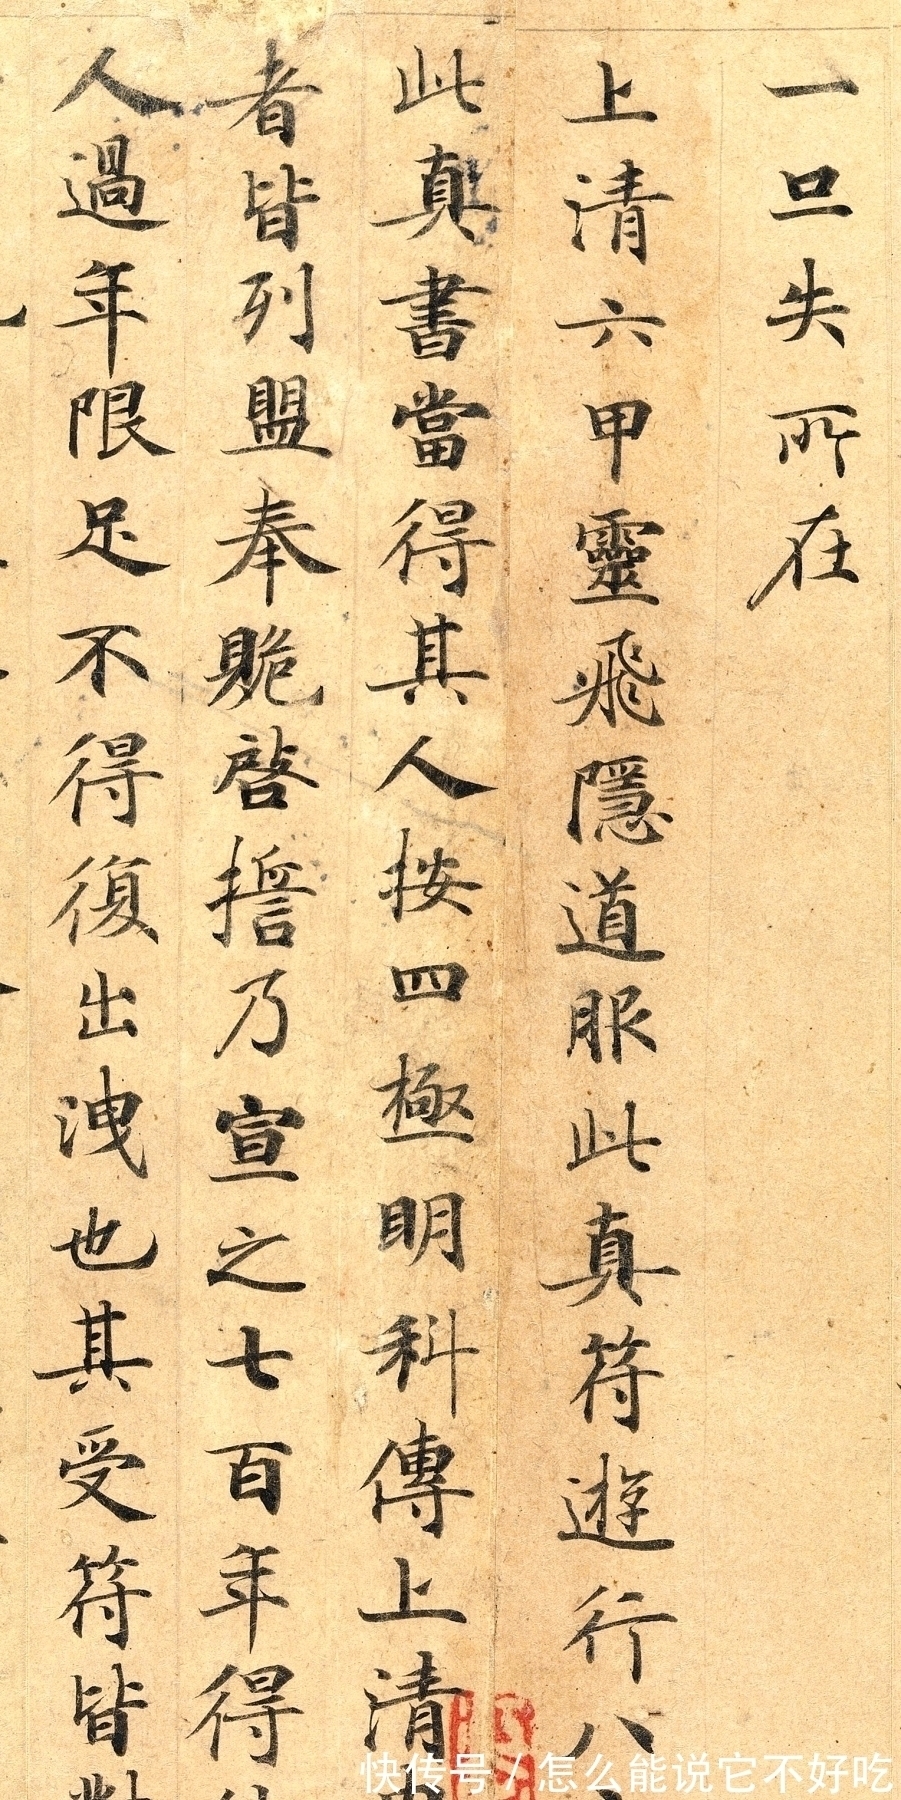 一旦失所在
上清六甲靈飛隱道服此真符遊行八
此真書當得其人按四極明科傳上清
者皆列盟奉貺啓誓乃宣之七百年得
人過年限足不得復出洩也其受符皆
快传号/怎么能说它不好吃